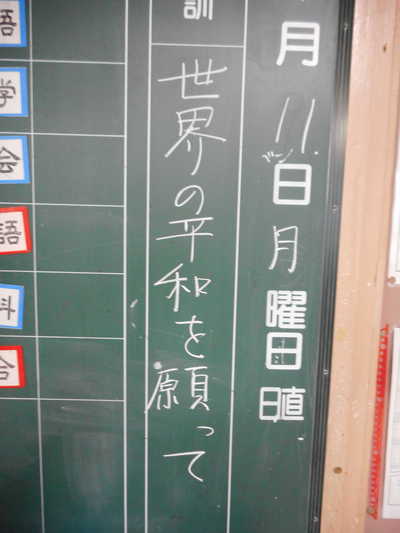 月11日月曜日 日直
訓
世界の平和を願って
語
学
会
語
科
合